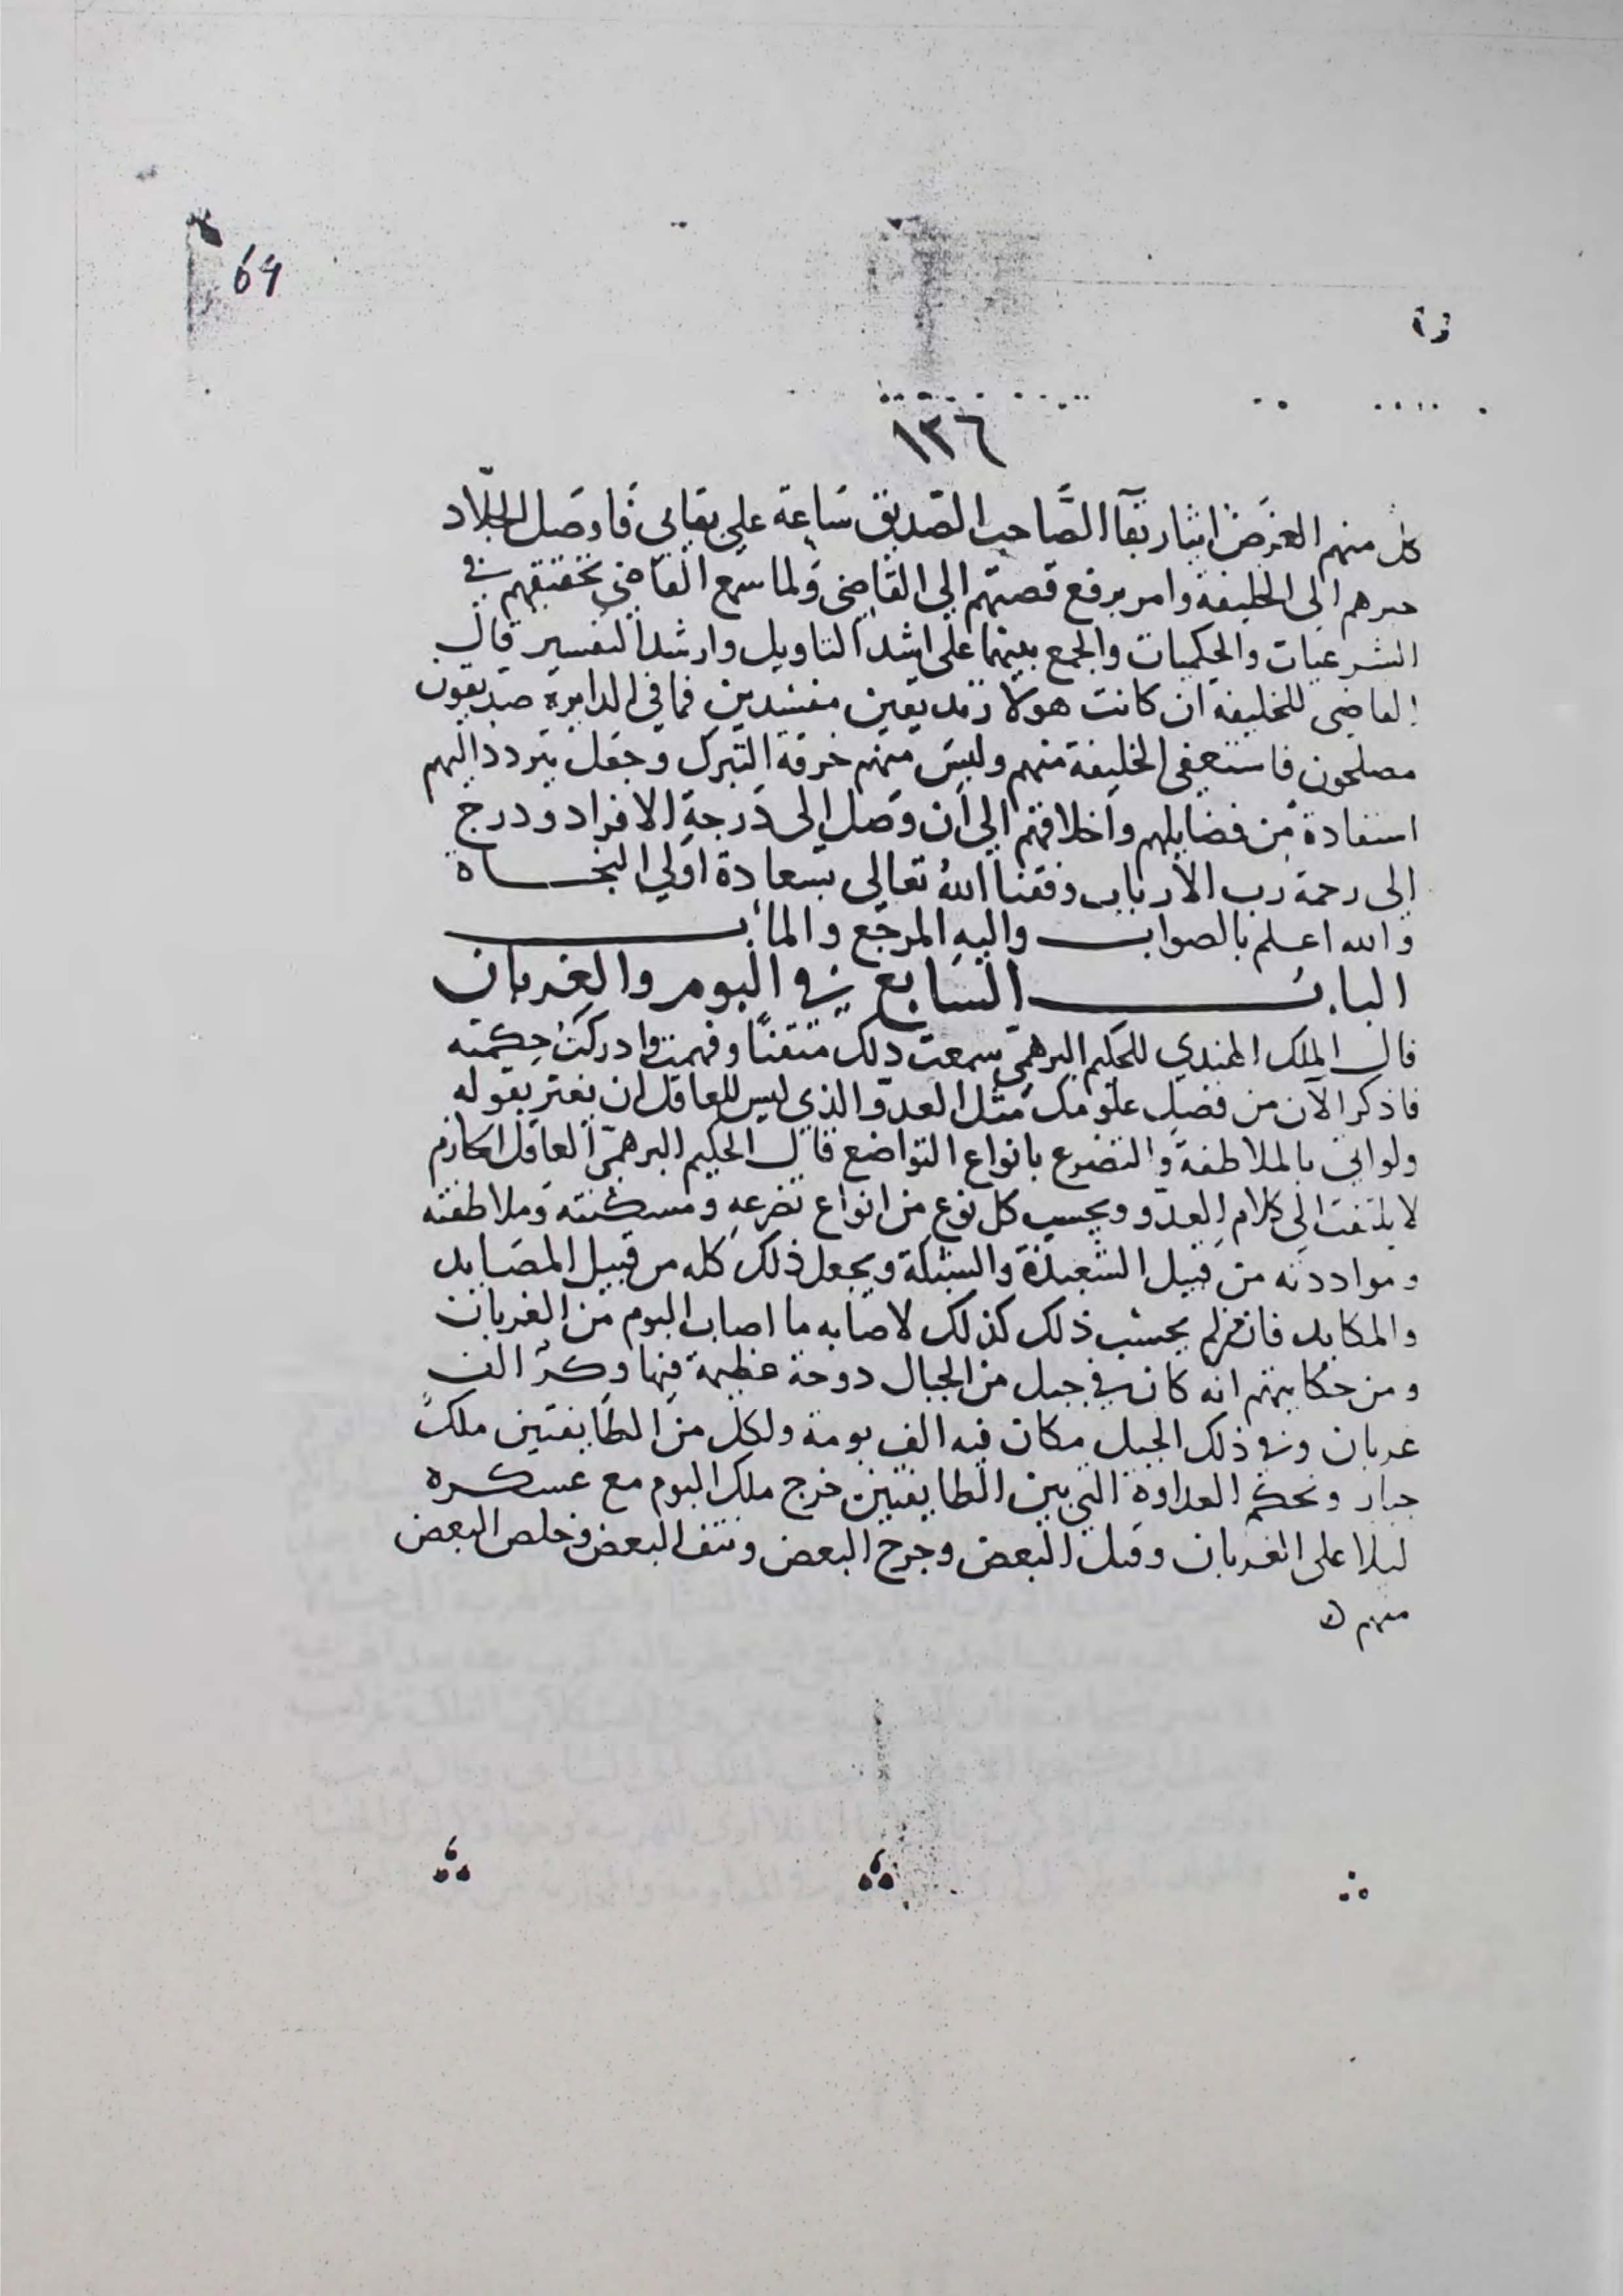 69
١٣٦
كل منهم الغرض ايثار بقآ الصاحب الصديق ساعة على بقايى فاوصل الجلاد
خبرهم الى الخليفة وامر برفع قصتهم الى القاضى ولما سمع القاضى تحقيقهم في
الشرعيات والحكميات والجمع بينهما على اشد التاويل وارشد التفسير قال
القاضى للخليفة ان كانت هولا زنديقين مفسدين فما في الدايرة صديقون
مصلحون فاستعفى الخليفة منهم ولبس منهم خرقة التبرك وجعل يتردد اليهم
استفادة من فضايلهم واخلاقهم الى ان وصل الى درجة الافراد ودرج
الى رحمة رب الارباب وفقنا الله تعالى بسعادة اولي النجاة
والله اعلم بالصواب واليه المرجع والمأب
الباب السابع في البوم والغربان
قال الملك الهندي للحكيم البرهمي سمعت ذلك متقنًا وفهمت وادركت حكمته
فاذكر الآن من فضل علومك مثل العدو الذي ليس للعاقل ان يغتر بقوله
ولو اتى بالملاطفة والتضرع بانواع التواضع قال الحكيم البرهمي العاقل الحازم
لا يلتفت الى كلام العدو ويحسب كل نوع من انواع تضرعه ومسكنته وملاطفته
وموادته من قبيل الشعبذة والشبكة ويجعل ذلك كله من قبيل المصايد
والمكايد فان لم يحسب ذلك كذلك لاصابه ما اصاب البوم من الغربان
ومن حكايتهم انه كان في جبل من الجبال دوحة عظيمة فيها وكر الف
غربان وفي ذلك الجبل مكان فيه الف بومة ولكل من الطايفتين ملك
جبار وبحكم العداوة التي بين الطايفتين خرج ملك البوم مع عسكره
ليلا على الغربان وقتل البعض وجرح البعض ونتف البعض وخلص البعض
منهم